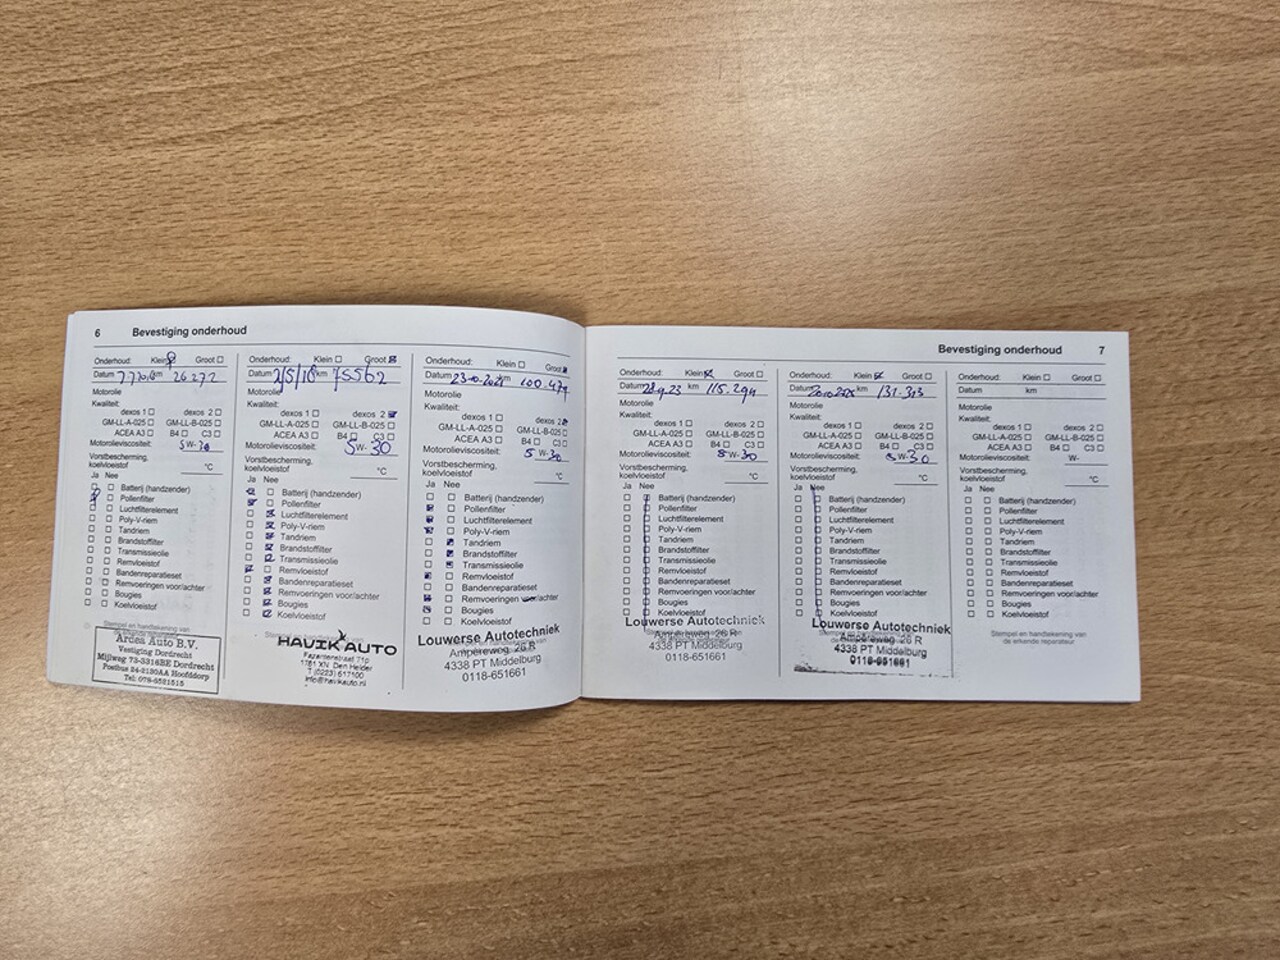 6 Bevestiging onderhoud
Onderhoud: Klein Groot
Datum km 26272
Motorolie
Kwaliteit:
dexos 1 dexos 2
GM-LL-A-025 GM-LL-B-025
ACEA A3 B4 C3
Motorolieviscositeit: 5 W-30
Vorstbescherming, koelvloeistof °C
Ja Nee
Batterij (handzender)
Pollenfilter
Luchtfilterelement
Poly-V-riem
Tandriem
Brandstoffilter
Transmissieolie
Remvloeistof
Bandenreparatieset
Remvoeringen voor/achter
Bougies
Koelvloeistof
Stempel en handtekening van
Ardea Auto B.V.
Vestiging Dordrecht
Mijlweg 73-3316BE Dordrecht
Postbus 24-2130AA Hoofddorp
Tel: 078-6521515
Onderhoud: Klein Groot
Datum 2/5/18 km 75562
Motorolie
Kwaliteit:
dexos 1 dexos 2
GM-LL-A-025 GM-LL-B-025
ACEA A3 B4 C3
Motorolieviscositeit: 5W-30
Vorstbescherming, koelvloeistof °C
Ja Nee
Batterij (handzender)
Pollenfilter
Luchtfilterelement
Poly-V-riem
Tandriem
Brandstoffilter
Transmissieolie
Remvloeistof
Bandenreparatieset
Remvoeringen voor/achter
Bougies
Koelvloeistof
HAVIK AUTO
1781 XN Den Helder
T (0223) 617100
info@havikauto.nl
Onderhoud: Klein Groot
Datum 23-10-2021 km 100.479
Motorolie
Kwaliteit:
dexos 1 dexos 2
GM-LL-A-025 GM-LL-B-025
ACEA A3 B4 C3
Motorolieviscositeit: 5 W-30
Vorstbescherming, koelvloeistof °C
Ja Nee
Batterij (handzender)
Pollenfilter
Luchtfilterelement
Poly-V-riem
Tandriem
Brandstoffilter
Transmissieolie
Remvloeistof
Bandenreparatieset
Remvoeringen voor/achter
Bougies
Koelvloeistof
Louwerse Autotechniek
Ampereweg 26 R
4338 PT Middelburg
0118-651661
Bevestiging onderhoud 7
Onderhoud: Klein Groot
Datum 28.9.23 km 115.294
Motorolie
Kwaliteit:
dexos 1 dexos 2
GM-LL-A-025 GM-LL-B-025
ACEA A3 B4 C3
Motorolieviscositeit: 5 W-30
Vorstbescherming, koelvloeistof °C
Ja Nee
Batterij (handzender)
Pollenfilter
Luchtfilterelement
Poly-V-riem
Tandriem
Brandstoffilter
Transmissieolie
Remvloeistof
Bandenreparatieset
Remvoeringen voor/achter
Bougies
Koelvloeistof
Louwerse Autotechniek
Ampereweg 26 R
4338 PT Middelburg
0118-651661
Onderhoud: Klein Groot
Datum km 131.313
Motorolie
Kwaliteit:
dexos 1 dexos 2
GM-LL-A-025 GM-LL-B-025
ACEA A3 B4 C3
Motorolieviscositeit: 5 W-30
Vorstbescherming, koelvloeistof °C
Ja Nee
Batterij (handzender)
Pollenfilter
Luchtfilterelement
Poly-V-riem
Tandriem
Brandstoffilter
Transmissieolie
Remvloeistof
Bandenreparatieset
Remvoeringen voor/achter
Bougies
Koelvloeistof
Louwerse Autotechniek
Ampereweg 26 R
4338 PT Middelburg
0118-651661
Onderhoud: Klein Groot
Datum km
Motorolie
Kwaliteit:
dexos 1 dexos 2
GM-LL-A-025 GM-LL-B-025
ACEA A3 B4 C3
Motorolieviscositeit: W-
Vorstbescherming, koelvloeistof °C
Ja Nee
Batterij (handzender)
Pollenfilter
Luchtfilterelement
Poly-V-riem
Tandriem
Brandstoffilter
Transmissieolie
Remvloeistof
Bandenreparatieset
Remvoeringen voor/achter
Bougies
Koelvloeistof
Stempel en handtekening van
de erkende reparateur